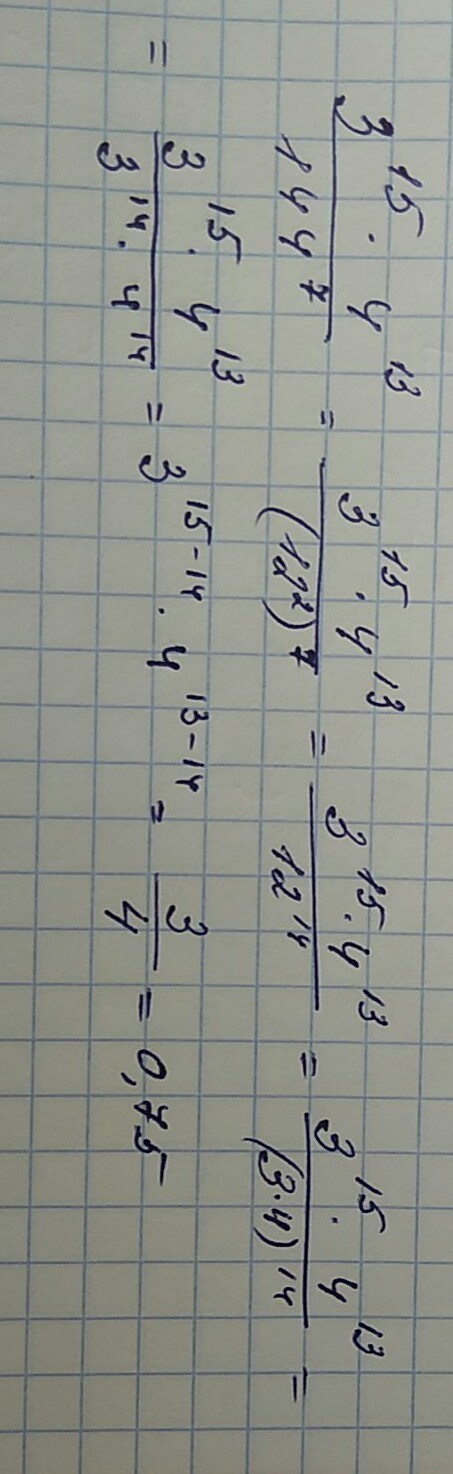 3^15 · 4^13 / 144^7 = 3^15 · 4^13 / (12^2)^7 = 3^15 · 4^13 / 12^14 = 3^15 · 4^13 / (3·4)^14 =
= 3^15 · 4^13 / 3^14 · 4^14 = 3^15-14 · 4^13-14 = 3/4 = 0,75